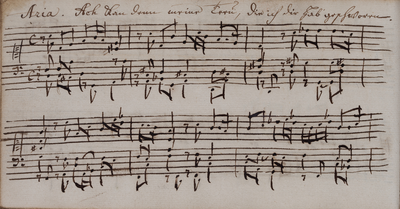 Aria. Ach kan denn meine Treu, die ich dir hab geschworen